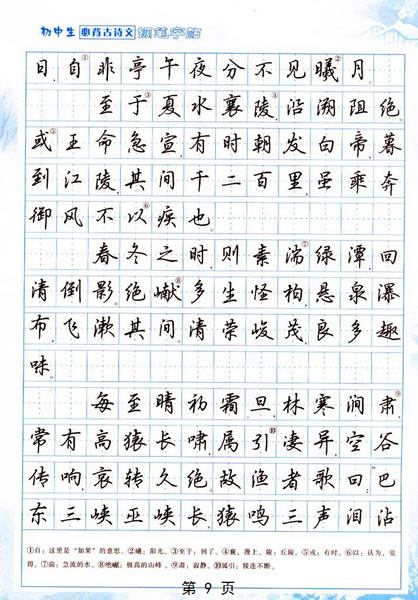 初中生 必背古诗文 钢笔字帖
日。自①非亭午夜分，不见曦②月。
至于③夏水襄④陵，沿溯阻绝。
或⑤王命急宣，有时朝发白帝，暮
到江陵，其间千二百里，虽乘奔
御风，不以⑥疾也。
春冬之时，则素湍⑦绿潭，回
清倒影。绝巘⑧多生怪柏，悬泉瀑
布，飞漱其间，清荣峻茂，良多趣
味。
每至晴初霜旦，林寒涧肃⑨，
常有高猿长啸，属引⑩凄异，空谷
传响，哀转久绝。故渔者歌曰：“巴
东三峡巫峡长，猿鸣三声泪沾
①自：这里是“如果”的意思。②曦：阳光。③至于：到了。④襄，漫上。陵：丘陵。⑤或：有时。⑥以：认为，觉
得。⑦湍：急流的水。⑧绝巘：极高的山峰。⑨肃：寂静。⑩属引：接连不断。
第 9 页